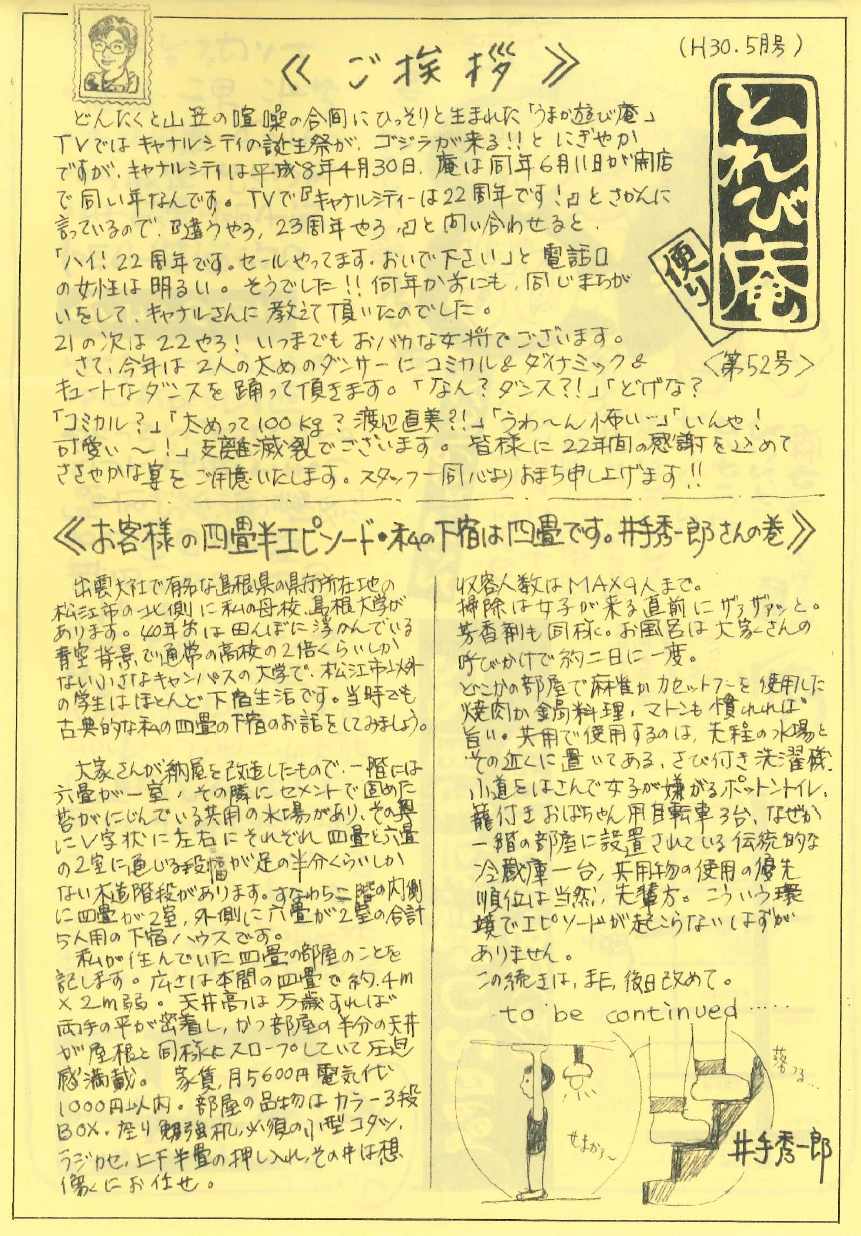 (H30.5月号)
≪ご挨拶≫
とれび庵
便り
<第52号>
どんたくと山笠の喧噪の合間にひっそりと生まれた「うまか遊び庵」
TVではキャナルシティの誕生祭が、ゴジラが来る!!とにぎやか
ですが、キャナルシティは平成8年4月30日、庵は同年6月11日が開店
で同い年なんです。TVで『キャナルシティーは22周年です!』とさかんに
言っているので、『違うやろ、23周年やろ』と問い合わせると、
「ハイ!22周年です。セールやってます。おいで下さい」と電話口
の女性は明るい。そうでした!!何年か前にも、同じまちが
いをして、キャナルさんに教えて頂いたのでした。
21の次は22やろ!いつまでもおバカな女将でございます。
さて、今年は2人の太めのダンサーにコミカル&ダイナミック&
キュートなダンスを踊って頂きます。「なん?ダンス?!」「どげな?
「コミカル?」「太めって100kg?渡辺直美?!」「うわ〜ん怖い…」「いんや!
可愛い〜!」支離滅裂でございます。皆様に22年間の感謝を込めて
ささやかな宴をご用意いたします。スタッフ一同心よりおまち申し上げます!!
≪お客様の四畳半エピソード・私の下宿は四畳です。井手秀一郎さんの巻≫
出雲大社で有名な島根県の県庁所在地の
松江市の北側に私の母校、島根大学が
あります。40年前は田んばに浮かんでいる
青空背景で通常の高校の2倍くらいしか
ない小さなキャンパスの大学で、松江市以外
の学生はほとんど下宿生活です。当時でも
古典的な私の四畳の下宿のお話をしてみましょう。
大家さんが納屋を改造したもので、一階には
六畳が一室、その隣にセメントで固めた
苔がにじんでいる共用の水場があり、その奥
にV字状に左右にそれぞれ四畳と六畳
の2室に通じる段幅が足の半分くらいしか
ない木造階段があります。すなわち二階の内側
に四畳が2室、外側に六畳が2室の合計
5人用の下宿ハウスです。
私が住んでいた四畳の部屋のことを
記します。広さは本間の四畳で約4m
×2m弱。天井高は万歳すれば
両手の平が密着し、かつ部屋の半分の天井
が屋根と同様にスロープしていて圧迫
感満載。家賃、月5600円電気代
1000円以内。部屋の品物はカラー3段
BOX、座り勉強机、必須の小型コタツ、
ラジカセ、上下半畳の押し入れ、その中は想
像にお任せ。
収容人数はMAX9人まで。
掃除は女子が来る直前にザァザァッと。
芳香剤も同様。お風呂は大家さんの
呼びかけで約二日に一度。
どこかの部屋で麻雀かカセットフーを使用した
焼肉か金属料理、マトンも慣れれば
旨い。共用で使用するのは、先程の水場と
その近くに置いてある、さび付き洗濯機、
小道をはさんで女子が嫌がるポットントイレ、
籠付きおばちゃん用自転車3台、なぜか
一階の部屋に設置されている伝統的な
冷蔵庫一台、共用物の使用の優先
順位は当然、先輩方。こういう環
境でエピソードが起こらないはずが
ありません。
この続きは、また、後日改めて。
to be continued……
せまか〜
落つる…
井手秀一郎